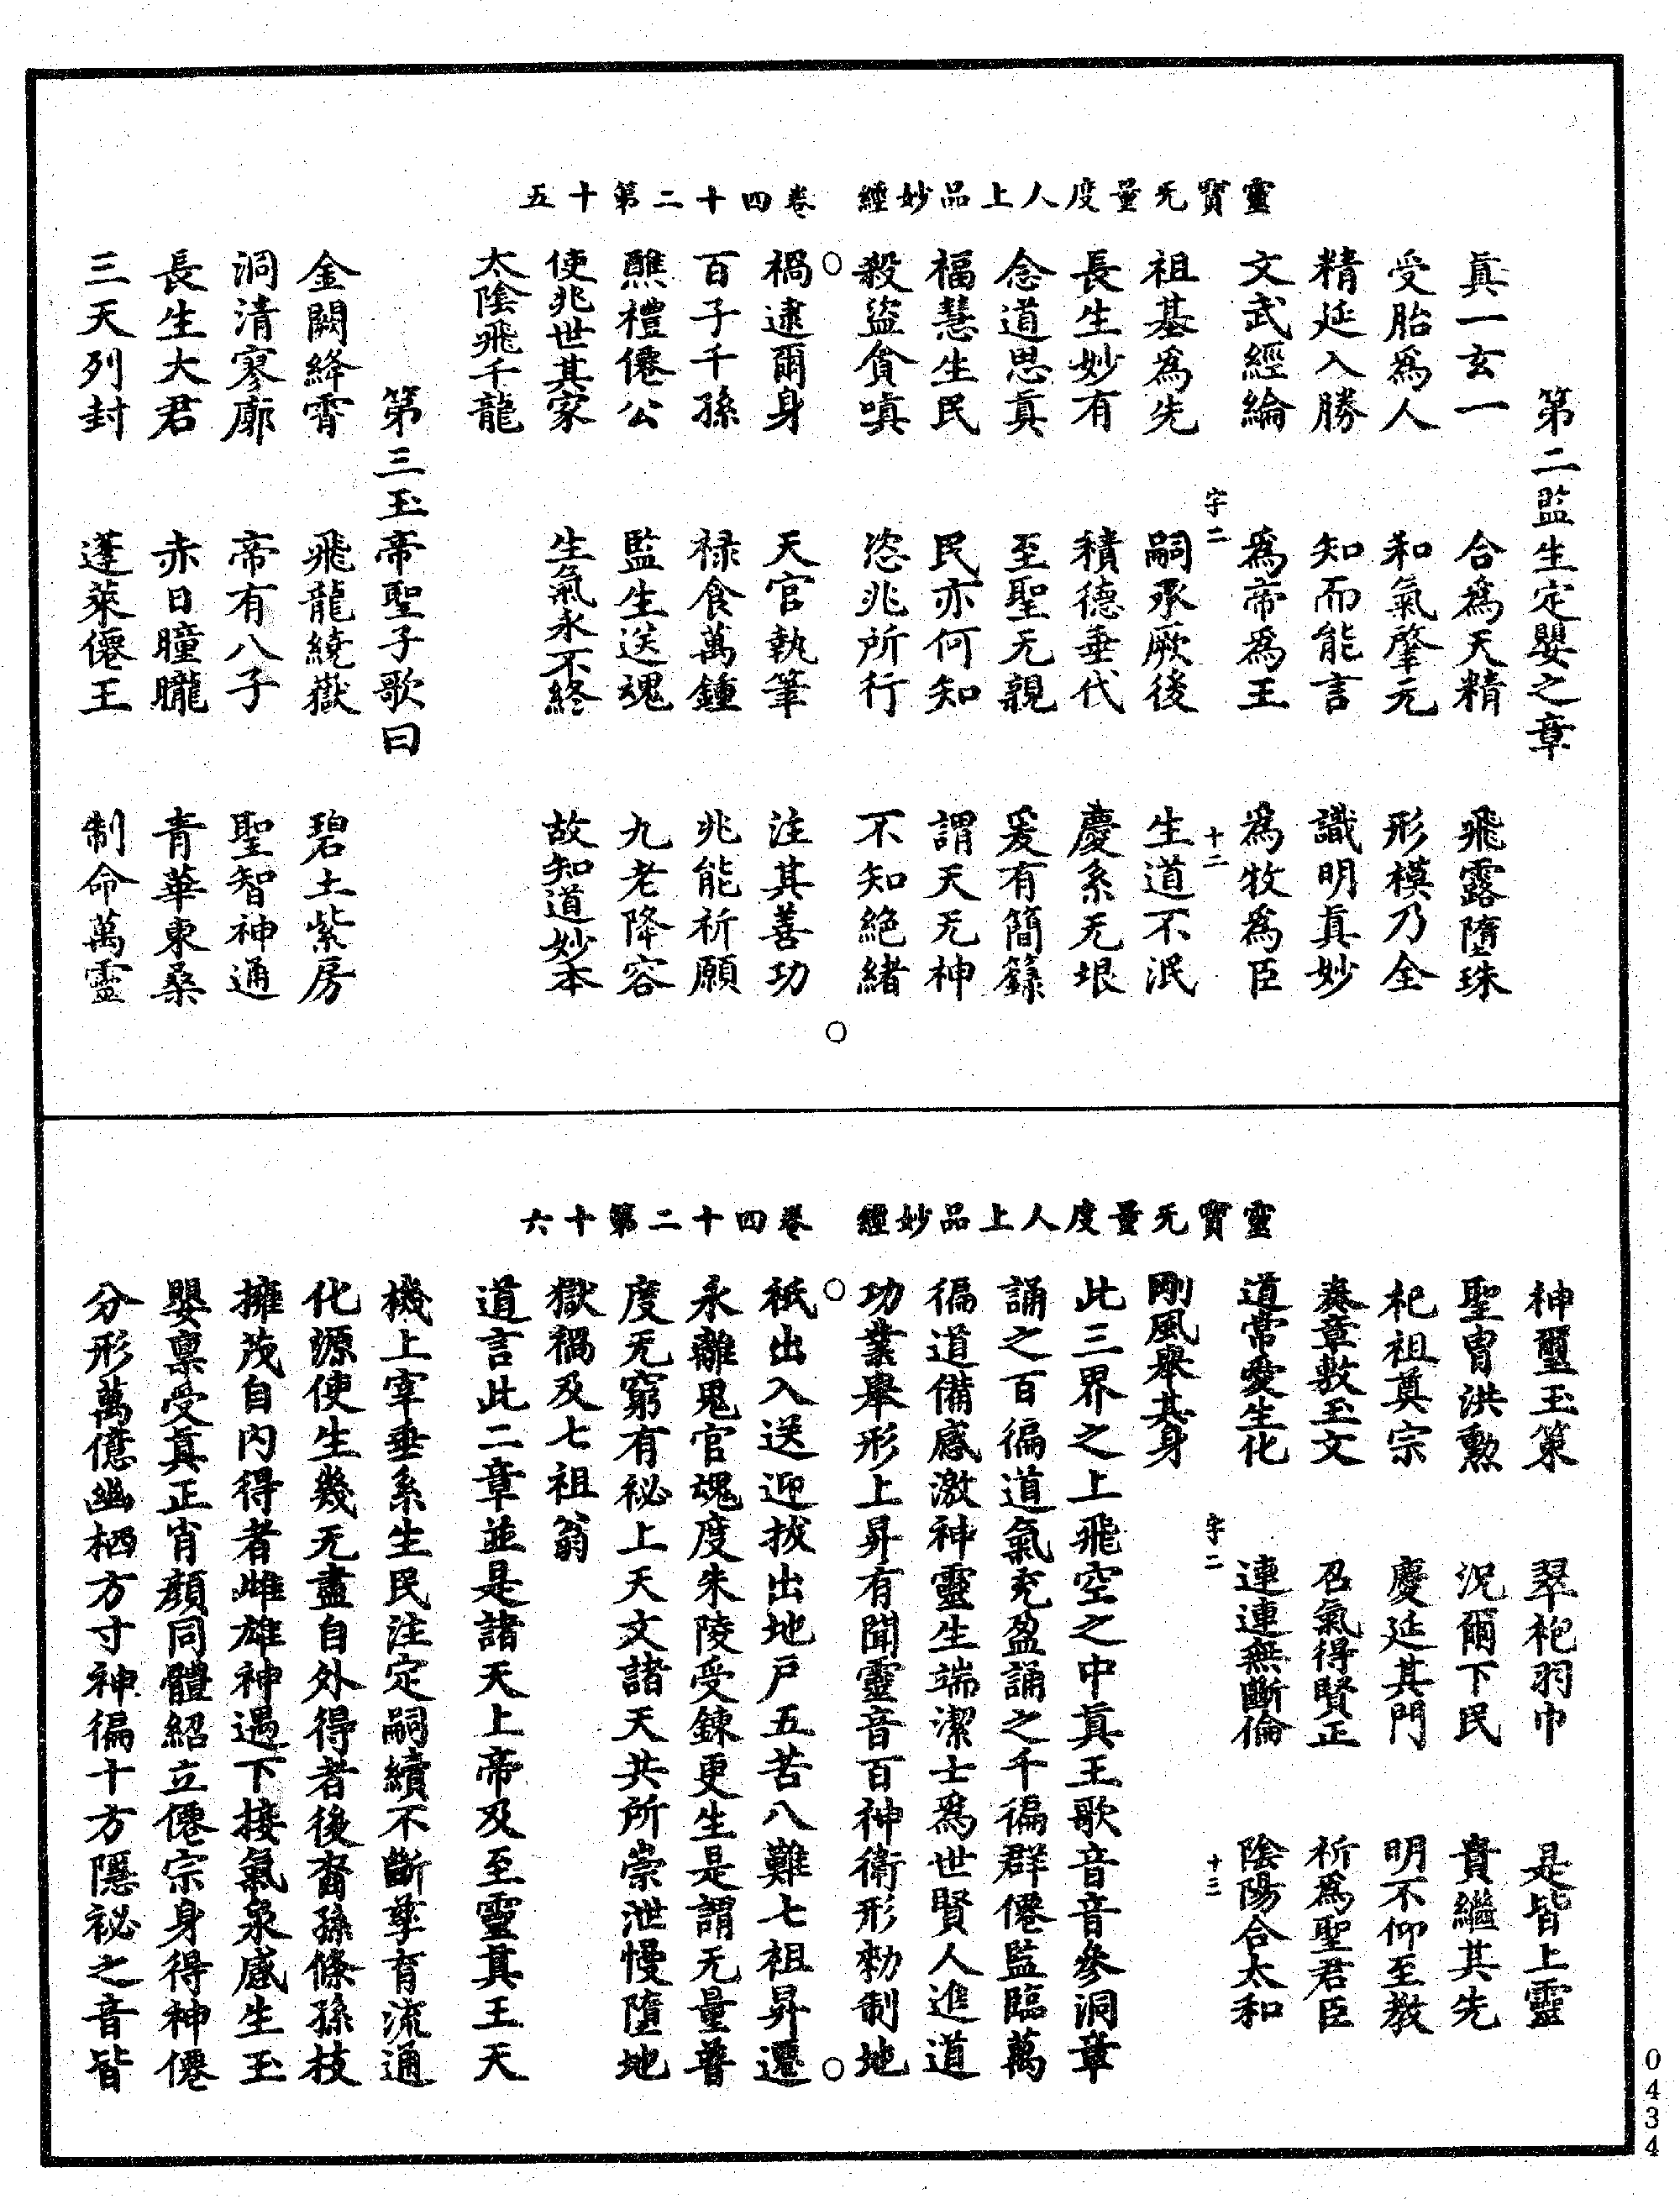 靈寶无量度人上品妙經　卷四十二第十五
第二監生定嬰之章
真一玄一　合為天精　飛露墮珠
受胎為人　和氣肇元　形模乃全
精延入勝　知而能言　識明真妙
文武經綸　為帝為王　為牧為臣
字二　十二
祖基為先　嗣承厥後　生道不泯
長生妙有　積德垂代　慶系无垠
念道思真　至聖无親　爰有簡籙
福慧生民　民亦何知　謂天无神
殺盜貪嗔　恣兆所行　不知絕緒
禍逮爾身　天官執筆　注其善功
百子千孫　祿食萬鍾　兆能祈願
醮禮僊公　監生送魂　九老降容
使兆世其家　生氣永不終　故知道妙本
太陰飛千龍
第三玉帝聖子歌曰
金闕絳霄　飛龍繞嶽　碧土紫房
洞清寥廓　帝有八子　聖智神通
長生大君　赤日曈曨　青華東桑
三天列封　蓬萊僊王　制命萬靈
靈寶无量度人上品妙經　卷四十二第十六
神璽玉策　翠袍羽巾　是皆上靈
聖胄洪勳　況爾下民　貴繼其先
祀祖奠宗　慶延其門　明不仰至教
奏章敷玉文　召氣得賢正　祈為聖君臣
道常愛生化　連連無斷倫　陰陽合太和
字二　十三
剛風舉其身
此三界之上飛空之中真王歌音音參洞章
誦之百徧道氣充盈誦之千徧群僊監臨萬
徧道備感激神靈生端潔士為世賢人進道
功業舉形上昇有聞靈音百神衛形勑制地
祇出入送迎拔出地戶五苦八難七祖昇遷
永離鬼官魂度朱陵受鍊更生是謂无量普
度无窮有祕上天文諸天共所崇泄慢墮地
獄禍及七祖翁
道言此二章並是諸天上帝及至靈真王天
機上宰垂系生民注定嗣續不斷孳育流通
化源使生幾无盡自外得者後裔孫條孫枝
擁茂自內得者雌雄神遇下接氣泉感生玉
嬰稟受真正肖顏同體紹立僊宗身得神僊
分形萬億幽栖方寸神徧十方隱祕之音皆
0434